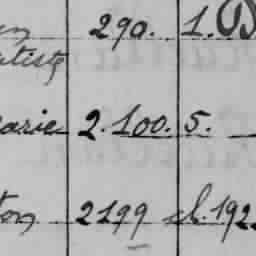 290. 1.
atiste
arie 2.100. 5.
ton 2199 cl. 192